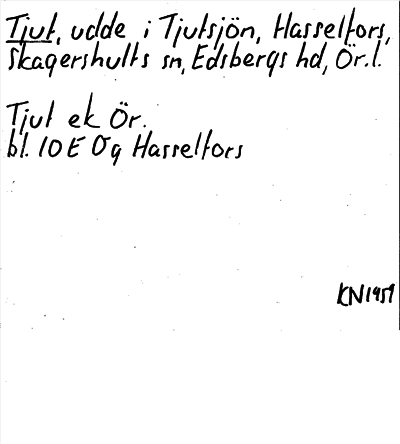 Tjut, udde i Tjutsjön, Hasselfors,
Skagershults sn, Edsbergs hd, Ör.l.
Tjut ek Ör.
bl. 10E 0g Hasselfors
KN1959